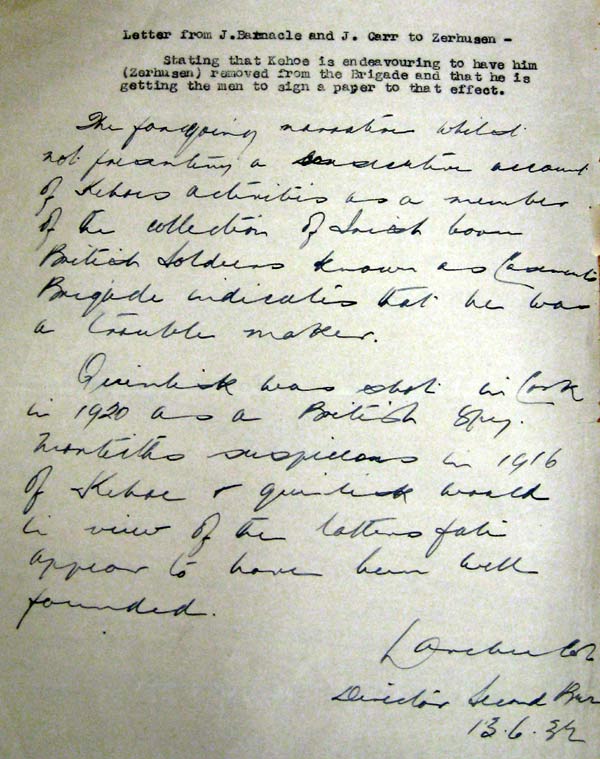 Letter from J.Barnacle and J. Carr to Zerhusen -
Stating that Kehoe is endeavouring to have him
(Zerhusen) removed from the Brigade and that he is
getting the men to sign a paper to that effect.
The foregoing narrative whilst
not presenting a consecutive account
of Kehoes activities as a member
of the collection of Irish born
British Soldiers known as Casements
Brigade indicates that he was
a trouble maker.
Quinlisk was shot in Cork
in 1920 as a British Spy.
Monteiths suspicions in 1916
of Kehoe & Quinlisk would
in view of the latters fate
appear to have been well
founded.
Director Second Bur
13.6.